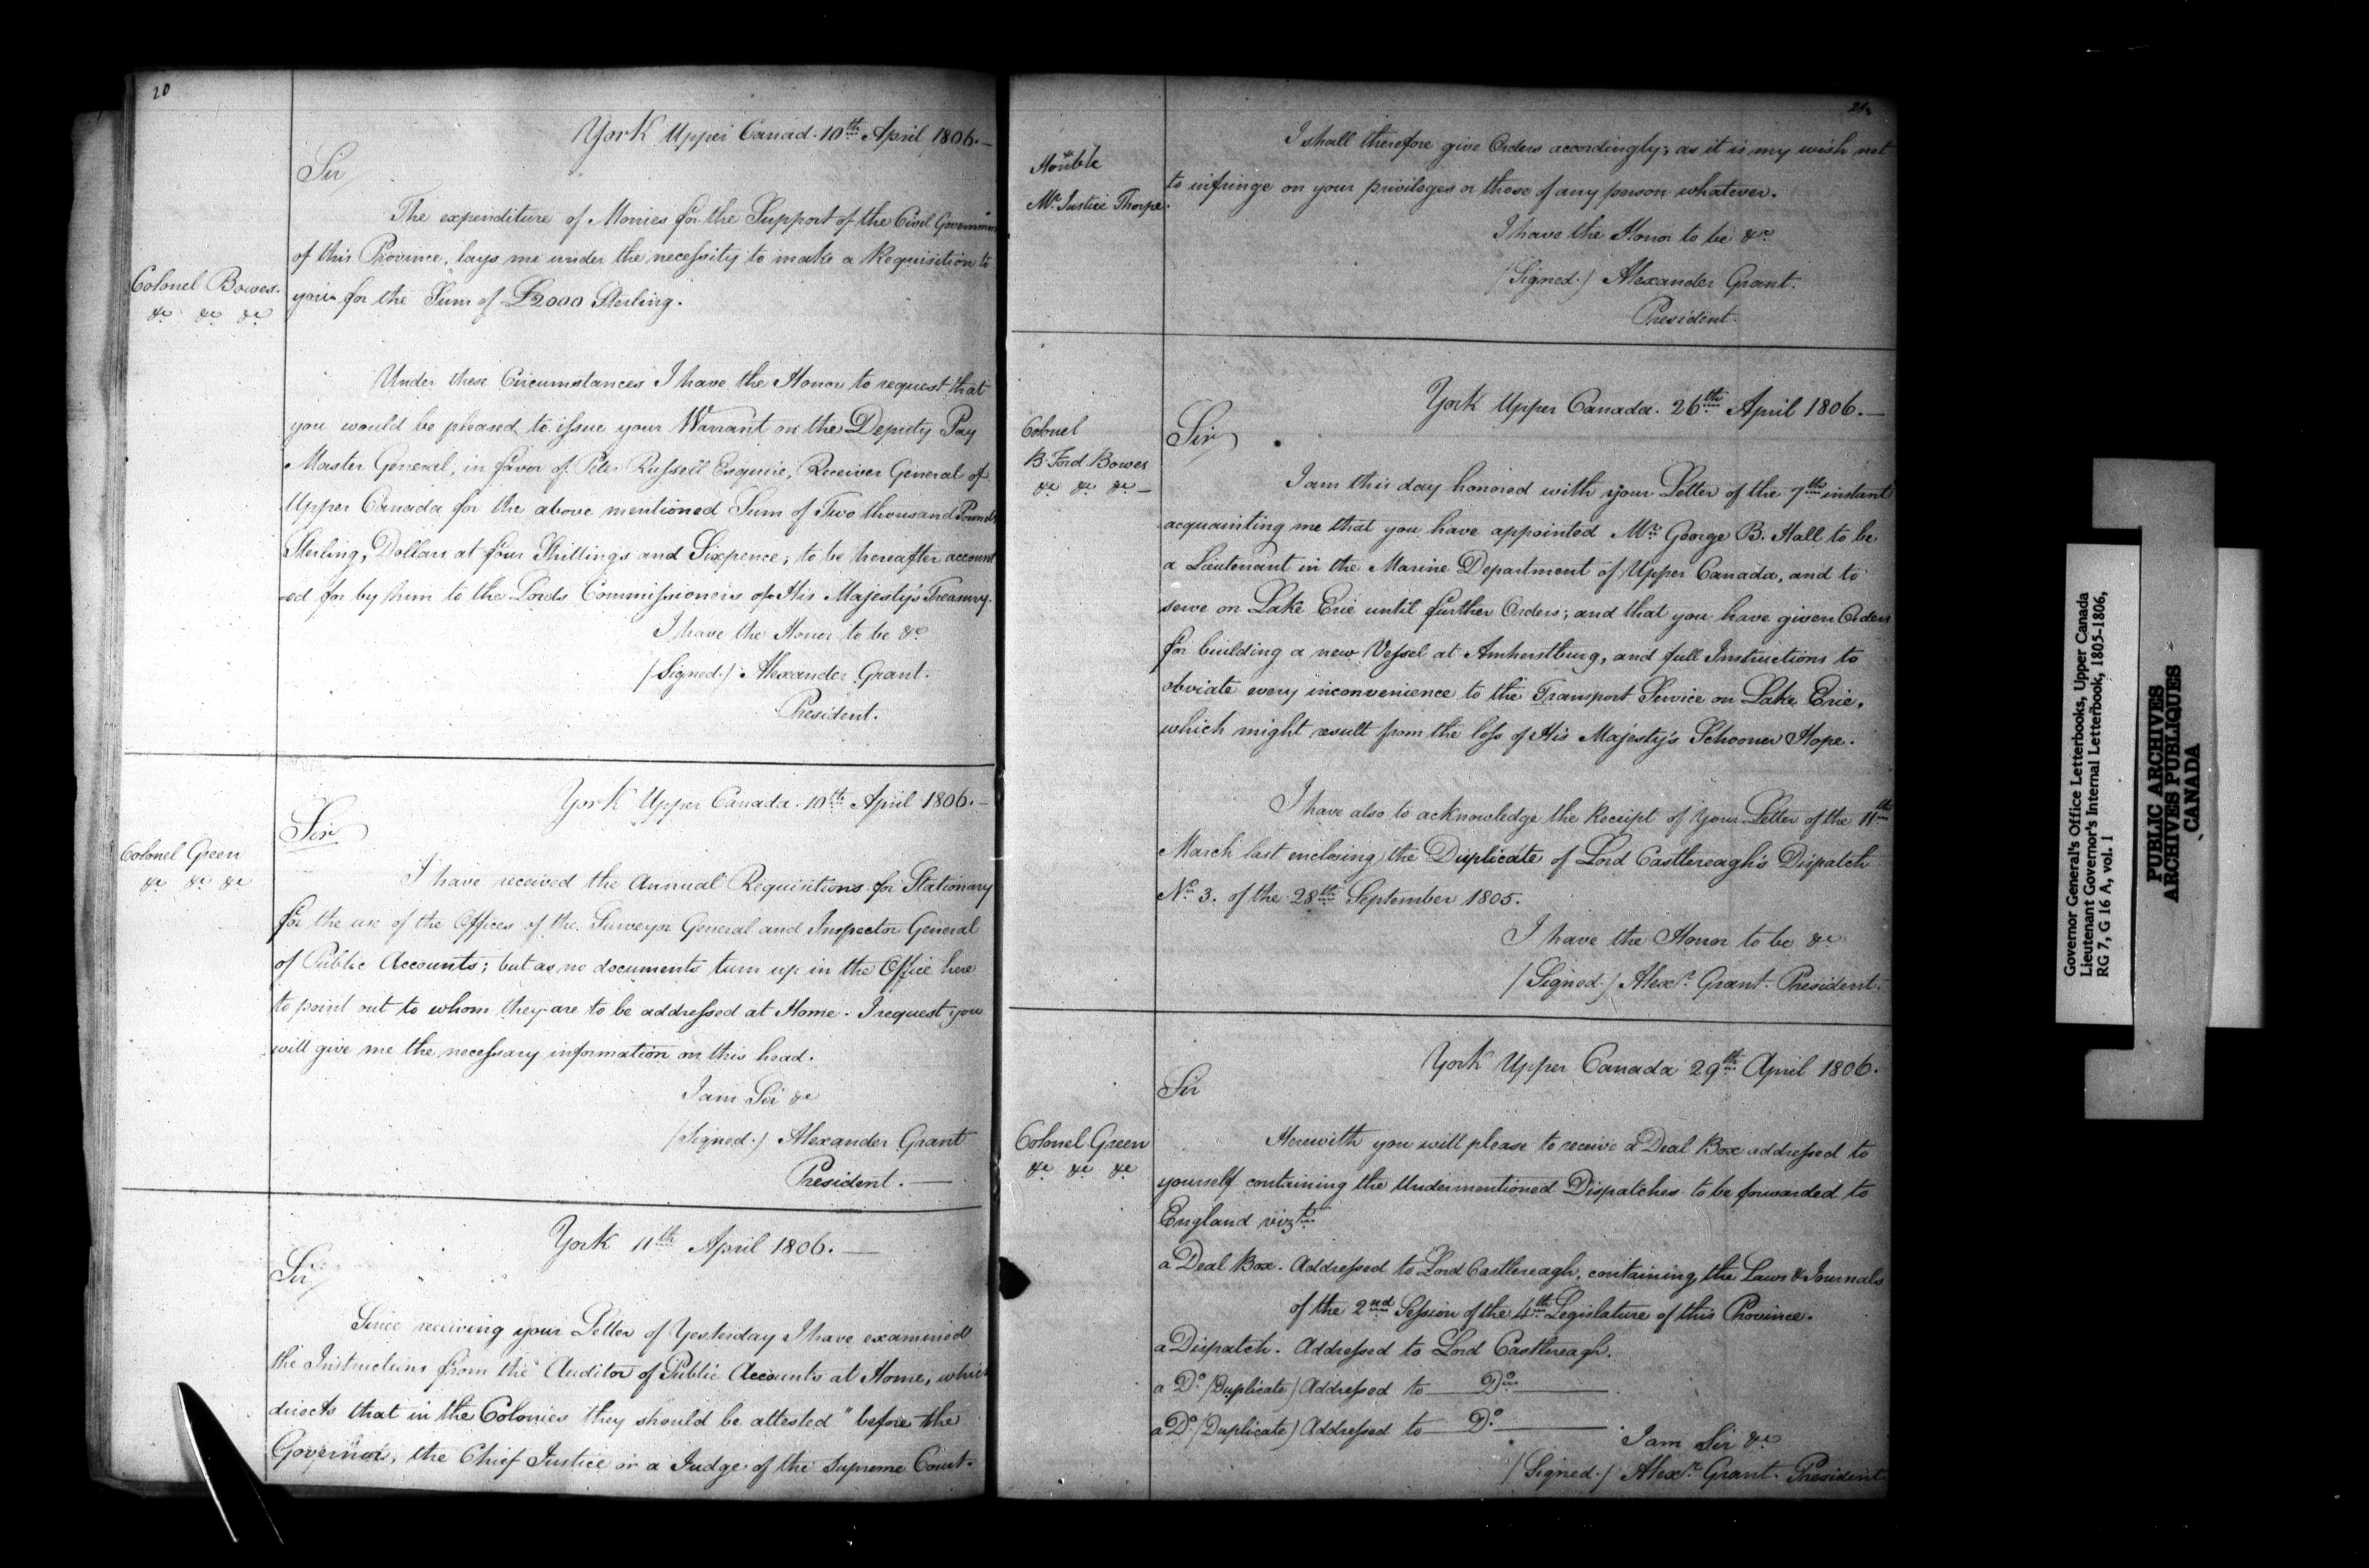 20
York Upper Canad. 10th April 1806.—
Sir
The expenditure of Monies for the Support of the Civil Government
of this Province, lays me under the necessity to make a Requisition to
Colonel Bowes.
&c &c &c
you for the Sum of £2000 Sterling.
Under these Circumstances I have the Honor to request that
you would be pleased to issue your Warrant on the Deputy Pay
Master General, in favor of Peter Russell Esquire, Receiver General of
Upper Canada for the above mentioned Sum of Two thousand Pounds
Sterling, Dollars at four Shillings and Sixpence; to be hereafter account
-ed for by him to the Lords Commissioners of His Majesty's Treasury.
I have the Honor to be &c
(Signed.) Alexander Grant.
President.
York Upper Canada. 10th April 1806.—
Sir
Colonel Green
&c &c &c
I have received the Annual Requisitions for Stationary
for the use of the Offices of the Surveyor General and Inspector General
of Public Accounts; but as no documents turn up in the Office here
to point out to whom they are to be addressed at Home. I request you
will give me the necessary information on this head.
I am Sir &c
(Signed.) Alexander Grant
President.—
York 11th April 1806.—
Sir
Since receiving your Letter of Yesterday I have examined
the Instructions from the Auditor of Public Accounts at Home, which
directs that in the Colonies they should be attested "before the
Governor, the Chief Justice or a Judge of the Supreme Court.
21.
Honble
Mr. Justice Thorpe.
I shall therefore give Orders accordingly; as it is my wish not
to infringe on your privileges or those of any person whatever.
I have the Honor to be &c
(Signed.) Alexander Grant.
President.
York Upper Canada. 26th April 1806.—
Sir
Colonel
B. Ford Bowes
&c &c &c—
I am this day honored with your Letter of the 7th instant
acquainting me that you have appointed Mr. George B. Hall to be
a Lieutenant in the Marine Department of Upper Canada, and to
serve on Lake Erie until further Orders; and that you have given Orders
for building a new Vessel at Amherstburg, and full Instructions to
obviate every inconvenience to the Transport Service on Lake Erie,
which might result from the loss of His Majesty's Schooner Hope.
I have also to acknowledge the Receipt of Your Letter of the 11th
March last enclosing the Duplicate of Lord Castlereagh's Dispatch
No. 3. of the 28th September 1805.
I have the Honor to be &c
(Signed.) Alexr. Grant. President.
York Upper Canada 29th April 1806.
Sir
Colonel Green
&c &c &c
Herewith you will please to receive a Deal Box addressed to
yourself containing the Undermentioned Dispatches to be forwarded to
England vizt.
a Deal Box. Addressed to Lord Castlereagh, containing the Laws & Journals
of the 2nd Session of the 4th Legislature of this Province.
a Dispatch. Addressed to Lord Castlereagh.
a Do. (Duplicate) Addressed to — Do. —
a Do. (Duplicate) Addressed to — Do. —
I am Sir &c
(Signed.) Alexr. Grant. President
Governor General's Office Letterbooks, Upper Canada
Lieutenant Governor's Internal Letterbook, 1805-1806,
RG 7, G 16 A, vol. 1
PUBLIC ARCHIVES
ARCHIVES PUBLIQUES
CANADA